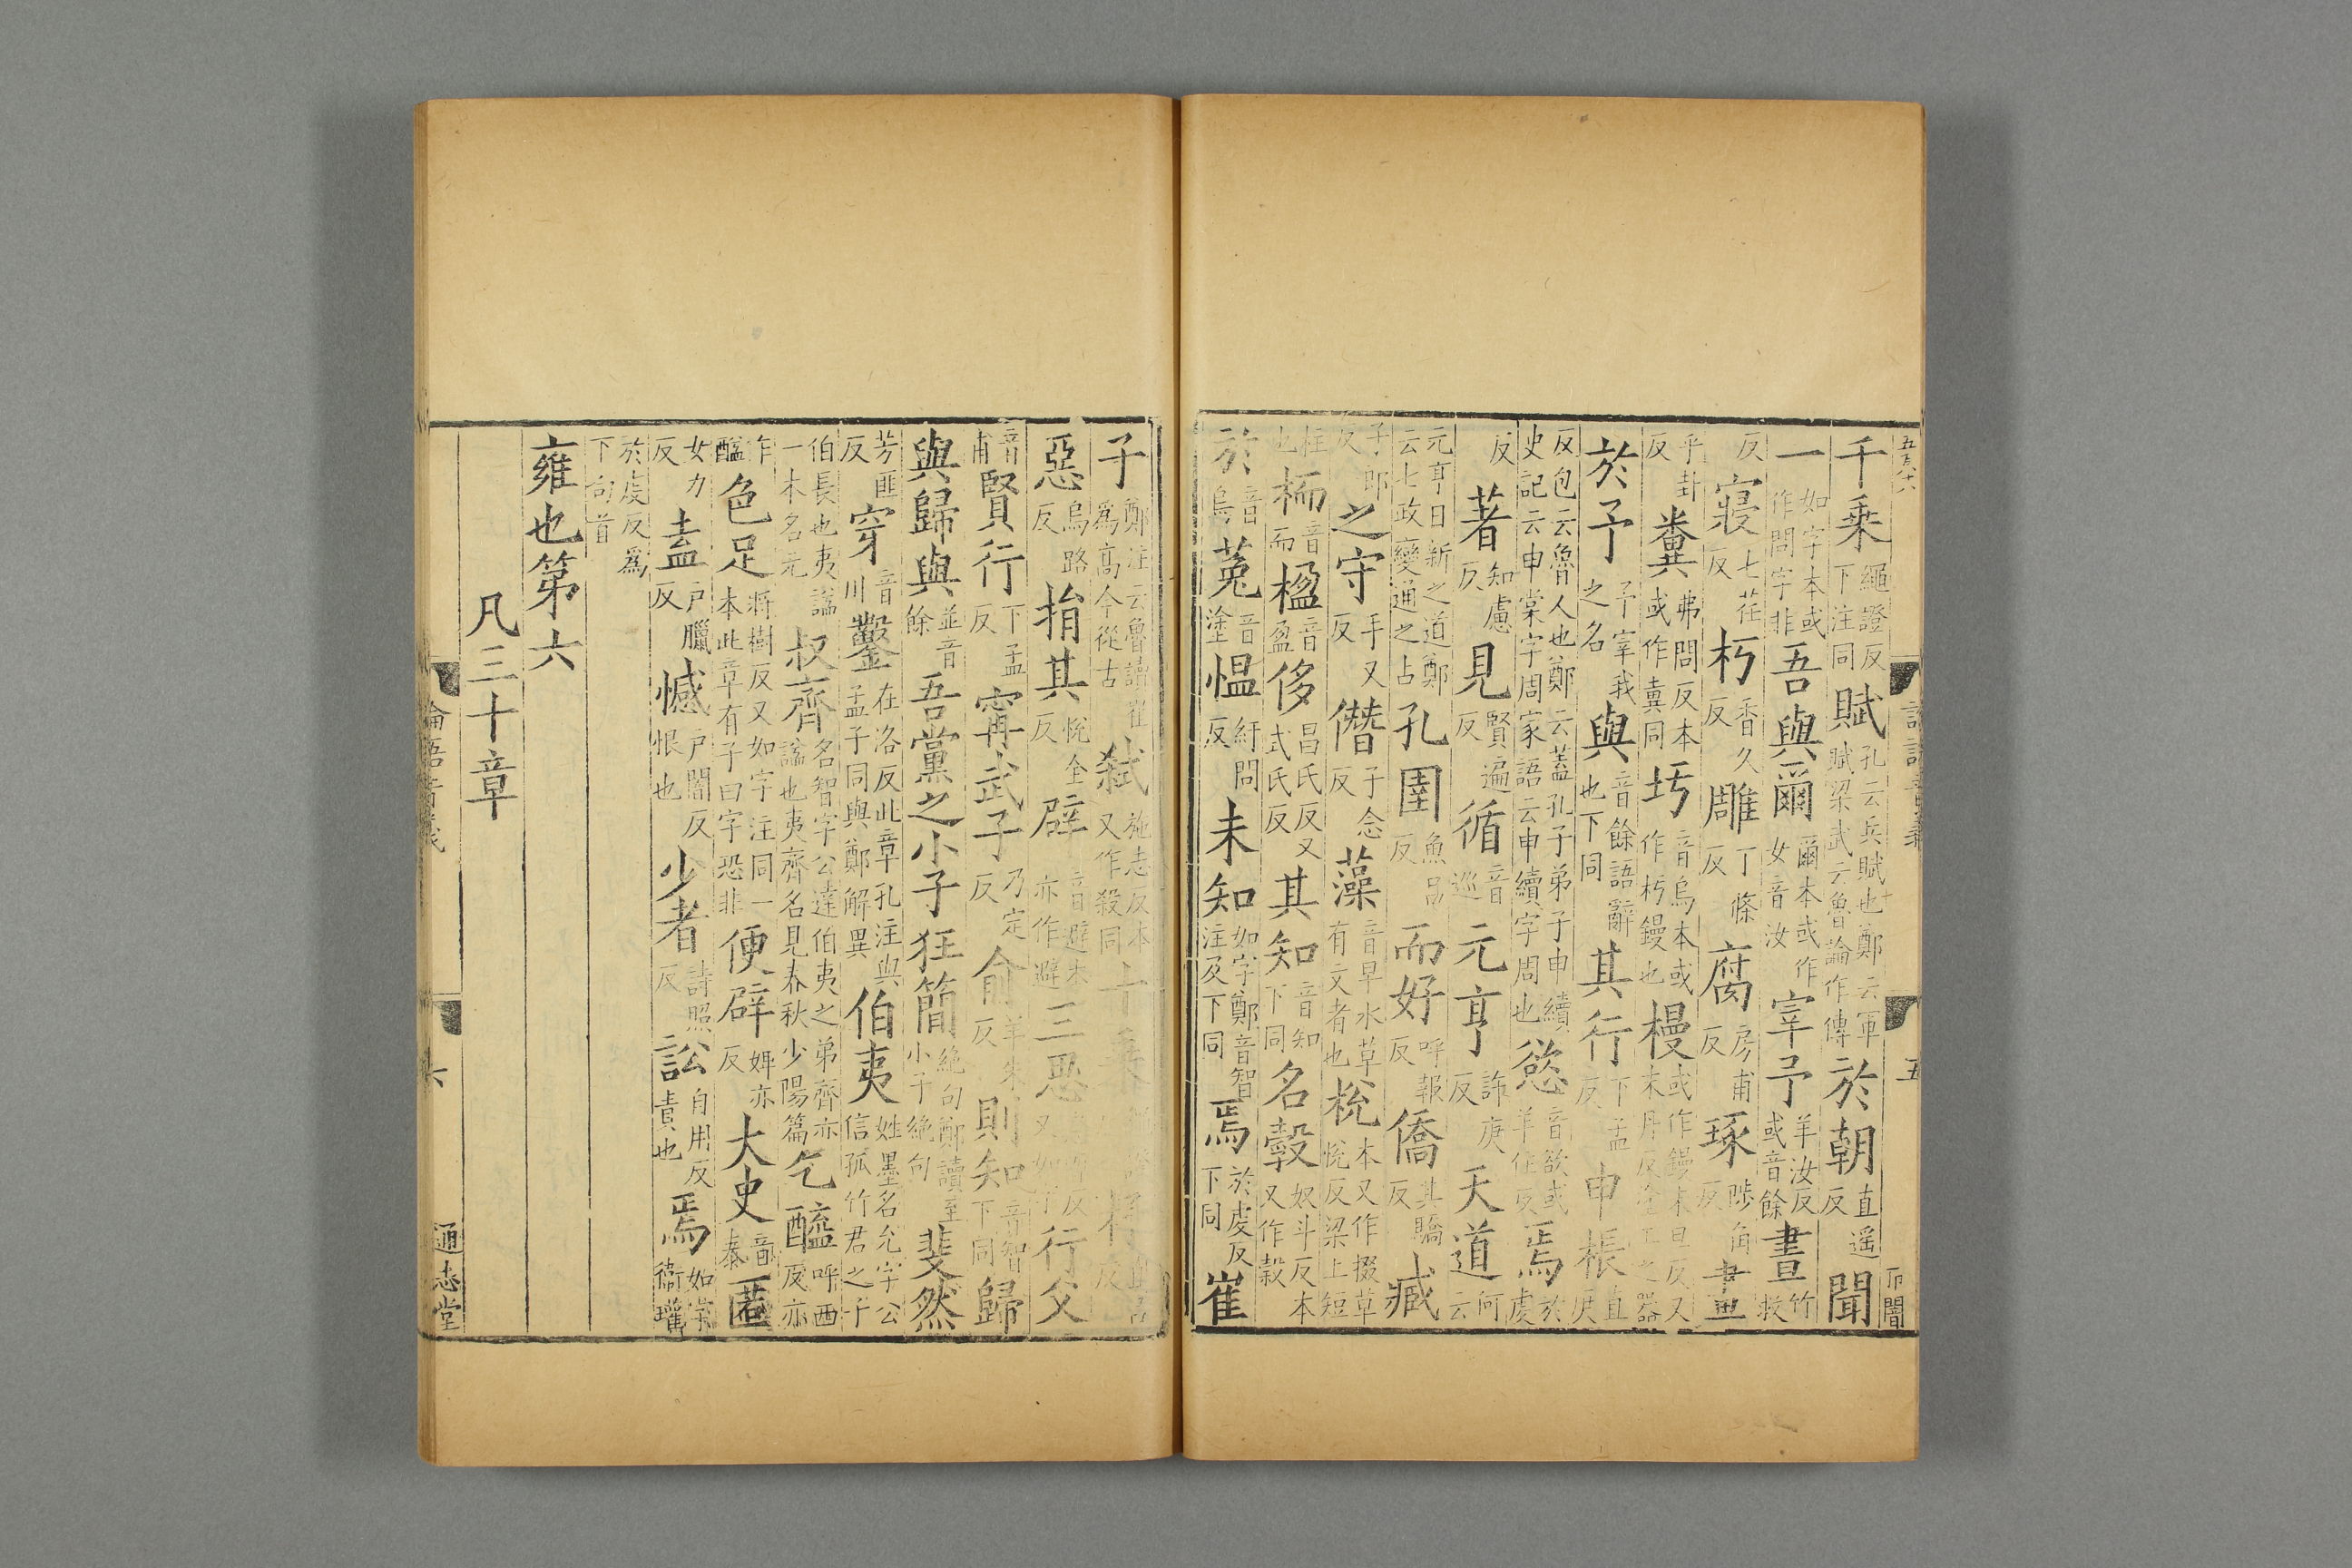 千乘繩證反下注同賦孔云兵賦也鄭云軍賦梁武云魯論作傅於朝直遥反聞
一如字本或作問字非吾與爾爾本或作女音汝宰予羊汝反或音餘晝竹救
反寢七荏反朽香久反雕丁條反腐房甫反琢陟角反畫
乎卦反糞弗問反本或作䉤同圬音烏本或作杇鏝也槾或作鏝末旦反又末丹反塗工之器
於予予宰我之名與音餘語辭也下同其行下孟反申棖直庚
反包云魯人也鄭云蓋孔子弟子申續史記云申棠字周家語云申續字周也慾音欲或羊住反焉於虔
反著知慮反見賢遍反循音巡元亨許庚反天道何云
元亨日新之道鄭云七政變通之占孔圉魚呂反而好呼報反僑其驕反臧
子郎反之守手又反僭子念反藻音早水草有文者也梲本又作掇章悅反梁上短
柱也栭音而楹音盈侈昌氏反又式氏反其知音知下同名㝅奴斗反本又作穀
於音烏菟音塗慍紆問反未知如字鄭音智注及下同焉於虔反下同崔
子鄭注云魯讀崔爲高今從古弒施志反本又作殺同十乘
惡烏路反捐其悅全反辟音避本亦作避三思行父
音甫賢行下孟反甯武子乃定反俞羊朱反則知音智下同歸
與歸與並音餘吾黨之小子狂簡絶句鄭讀至小子絶句斐然
芳匪反穿音川鑿在洛反此章孔注與孟子同與鄭解異伯夷姓墨名允字公信孤竹君之子
伯長也夷謚一本名元叔齊名智字公達伯夷之弟齊亦謚也夷齊名見春秋少陽篇乞醯呼西反亦
作醯色足將樹反又如字注同一本此章有子曰字恐非便辟婢亦反大史音泰匿
女力反盍戶臘反憾戶闇反恨也少者詩照反訟自用反責也焉如字衞瓘
於虔反爲下句首
雍也第六
凡三十章
論語音義
六
通志堂